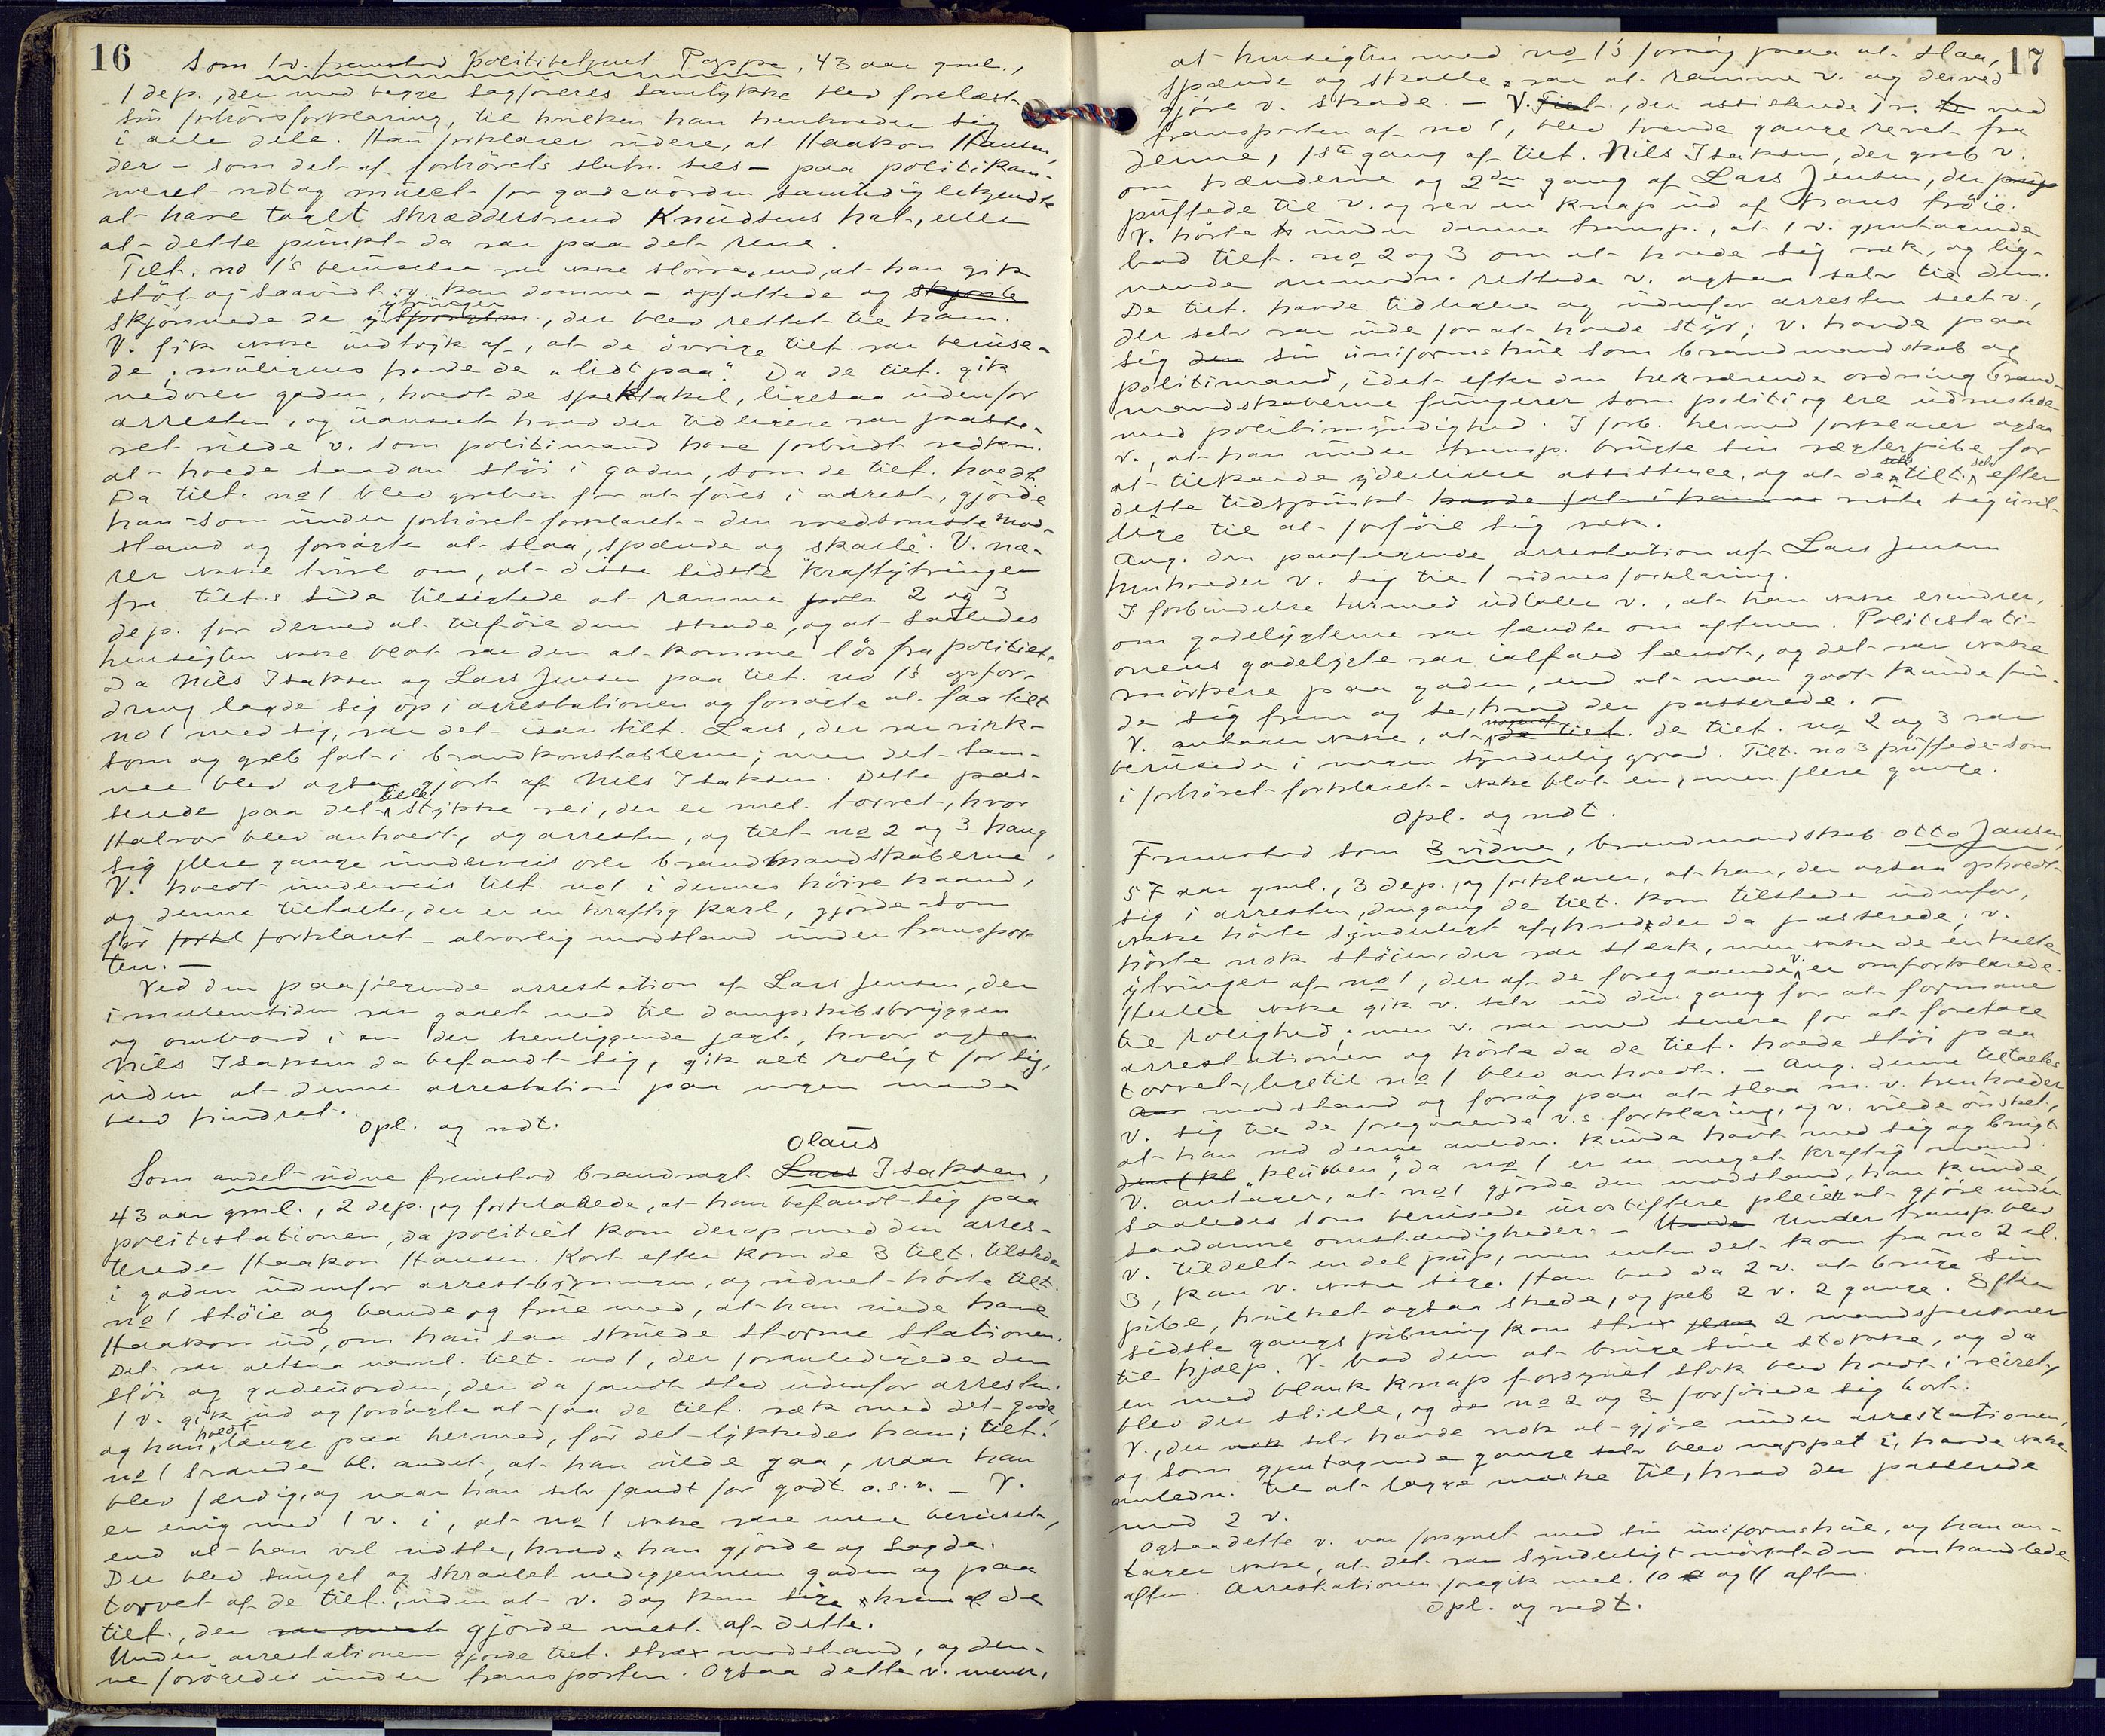 16
Som 1 v. fremstod Politibetjent Poppe, 43 aar gml.,
1 dep., der med begge sagføreres samtykke blev forelæst
sin forhørsforklaring, til hvilken han henholder sig
i alle dele. Han forklarer videre, at Haakon Hansen,
der – som det af forhørets slutn. sees – paa politikam-
meret vedtog mulct for gadeuorden samtidig vedkjendte
at have taget skræddersvend Knudsens hat, eller
at dette punkt da var paa det rene.
Tilt. no 1's beruselse var ikke større, end, at han gik
støt og saavidt v. kan dømme – opfattede og skjønte
skjønnede de ytringer, der blev rettet til ham.
V. fik ikke indtryk af, at de øvrige tilt. var beruse-
de; muligens havde de "lidt paa". Da de tilt. gik
nedover gaden, holdt de spektakel, ligesaa udenfor
arresten, og uanseet hvad der tidligere var passe-
ret vilde v. som politimand have forbudt vedkom.
at holde saadan støi i gaden, som de tilt. holdt.
Da tilt. no 1 blev greben for at føres i arrest, gjorde
han – som under forhøret forklaret – den voldsomste mod-
stand og forsøgte at slaa, spænde og skalle. V. næ-
rer ikke tvivl om, at disse sidste kraftytringer
fra tilt.s side tilsigtede at ramme 2 og 3
dep. for derved at tilføie dem skade, og at saaledes
hensigten ikke blot var den at komme løs fra politiet.
Da Nils Isaksen og Lars Jensen paa tilt. no 1's opfor-
dring lagde sig op i arrestationen og forsøgte at faa tilt
no 1 med sig, var det især tilt. Lars, der var virk-
som og greb fat i brandkonstablerne; men det sam-
me blev ogsaa gjort af Nils Isaksen. Dette pas-
serede paa det lille stykke vei, der er mel. torvet, hvor
Halvor blev anholdt, og arresten, og tilt. no 2 og 3 hang
sig flere gange underveis over brandmandskaberne,
V. holdt underveis tilt. no 1 i dennes høire haand,
og denne tiltalte, der er en kraftig karl, gjorde – som
før forklaret – alvorlig modstand under transpor-
ten. –
Ved den paafølgende arrestation af Lars Jensen, der
imidlertiden var gaaet ned til dampskibsbryggen
og ombord i en der henliggende jagt, hvor ogsaa
Nils Isaksen da befandt sig, gik alt roligt for sig,
uden at denne arrestation paa nogen maade
blev hindret.
Opl. og vedt.
Olaus
Som andet vidne fremstod brandvagt Lars Isaksen,
43 aar gml., 2 dep., og forklarede, at han befandt sig paa
politistationen, da politiet kom derop med den arres-
terede Haakon Hansen. Kort efter kom de 3 tilt. tilstede
i gaden udenfor arrestbygningen, og vidnet hørte tilt.
no 1 støie og bande og true med, at han vilde have
Haakon ud, om han saa skulde storme stationen.
Det var altsaa navnl. tilt. no 1, der foranledigede den
støi og gadeuorden, der da fandt sted udenfor arresten.
1 v. gik ud og forsøgte at faa de tilt. væk med det gode,
og han holdt længe paa hermed, før det lykkedes ham; tilt.
no 1 svarede bl. andet, at han vilde gaa, naar han
blev færdig, og naar han selv fandt for godt o.s.v. – V.
er enig med 1 v. i, at no 1 ikke var mere beruset,
end at han vel vidste, hvad han gjorde og sagde.
Der blev sunget og skraalet nedigjennem gaden og paa
torvet af de tilt., uden at v. dog kan sige hvem af de
tilt., der var mest gjorde mest af dette.
Under arrestationen gjorde tilt. strax modstand, og den-
ne forøgedes under transporten. Ogsaa dette v. mener,
17
at hensigten med no 1's forsøg paa at slaa,
spænde og skalle, var at ramme v. og derved
gjøre v. skade. – V. Tilt., der assisterede 1 v. ved
transporten af no 1, blev tvende gange revet fra
denne, 1ste gang af tilt. Nils Isaksen, der greb v.
om hænderne og 2den gang af Lars Jensen, der
puffede til v. og rev en knap ud af hans trøie.
V. hørte under denne transp., at 1 v. gjentagende
bad tilt. no 2 og 3 om at holde sig væk, og lig-
nende anmodn. rettede v. ogsaa selv til dem.
De tilt. havde tidligere og udenfor arresten seet v.,
der selv var ude for at holde styr; v. havde paa
sig sin uniformshue som brandmandskab og
politimand, idet efter den herværende ordning brand-
mandskaberne fungerer som politi og ere udrustede
med politimyndighed. I forb. hermed forklarer ogsaa
v., at han under transp. brugte sin vægterpibe for
at tilkalde yderligere assistence, og at de tilt. selv efter
dette tidspunkt viste sig uvil-
lige til at forføie sig væk.
Ang. den paafølgende arrestation af Lars Jensen
henholder v. sig til 1 vidnes forklaring.
I forbindelse hermed udtaler v., at han ikke erindrer,
om gadelygterne var tændte om aftenen. Politistati-
onens gadelygte var ialfald tændt, og det var ikke
mørkere paa gaden, end at man godt kunde fin-
de sig frem og se, hvad der passerede. –
V. antager ikke, at nogen af de tilt. de tilt. no 2 og 3 var
berusede i nogen synderlig grad. Tilt. no 3 puffede – som
i forhøret forklaret – ikke blot en, men flere gange.
Opl. og vedt.
Fremstod som 3 vidne, brandmandskab Otto Jansen,
57 aar gml., 3 dep., og forklarer, at han, der ogsaa opholdt
sig i arresten, dengang de tilt. kom tilstede udenfor,
ikke hørte synderligt af, hvad der da passerede; v.
hørte nok støien, der var stærk, men ikke de enkelte
ytringer af no 1, der af de foregaaende v. er omforklarede.
Heller ikke gik v. selv ud dengang for at formane
til rolighed; men v. var med senere for at foretage
arrestationen og hørte da de tilt. holde støi paa
torvet, ligetil no 1 blev anholdt. – Ang. denne tiltaltes
modstand og forsøg paa at slaa m.v. henholder
v. sig til de foregaaende v.s forklaring, og v. vilde ønsket,
at han ved denne anledn. kunde havt med sig og brugt
"klubben", da no 1 er en meget kraftig mand.
V. antager, at no 1 gjorde den modstand, han kunde,
saaledes som berusede urostiftere pleier at gjøre under
saadanne omstændigheder. – Under transp. blev
v. tildelt en del puf, men enten det kom fra no 2 el.
3, kan v. ikke sige. Han bad da 2 v. at bruge sin
pibe, hvilket ogsaa skede, og peb 2 v. 2 gange. Efter
sidste gangs pibning kom strax 2 mandspersoner
til hjælp. V. bad dem at bruge sine stokke, og da
en med blank knap forsynet stok blev holdt i veiret,
blev der stille, og no 2 og 3 forføiede sig bort.
V., der selv havde nok at gjøre under arrestationen,
og som gjentagende gange blev nappet i, havde ikke
anledn. til at lægge mærke til, hvad der passerede
med 2 v.
Ogsaa dette v. var forsynet med sin uniformshue, og han an-
tager ikke, at det var synderligt mørkt den omhandlede
aften. Arrestationen foregik mel. 10 og 11 aften.
Opl. og vedt.